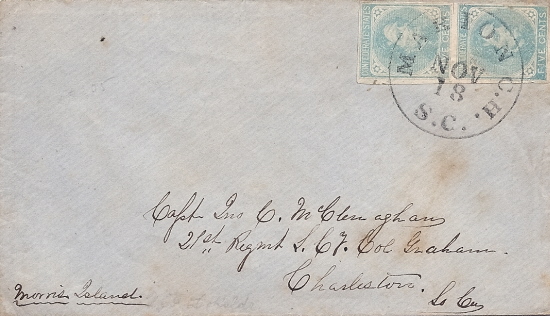 FIVE CENTS FIVE CENTS
MARION C.H.
NOV
18
S.C.
Capt Jno C. McClenaghan
21st Regmt S. C. V. Col Graham.
Charleston.
So Ca
Morris Island.